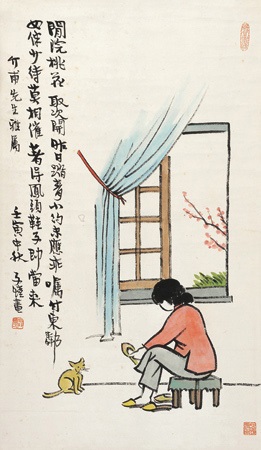 閒院桃花取次開昨日踏青小約未應乖囑付東鄰
女伴少待莫相催著得鳳頭鞋子即當來
竹甫先生雅屬
壬寅中秋 子愷畫